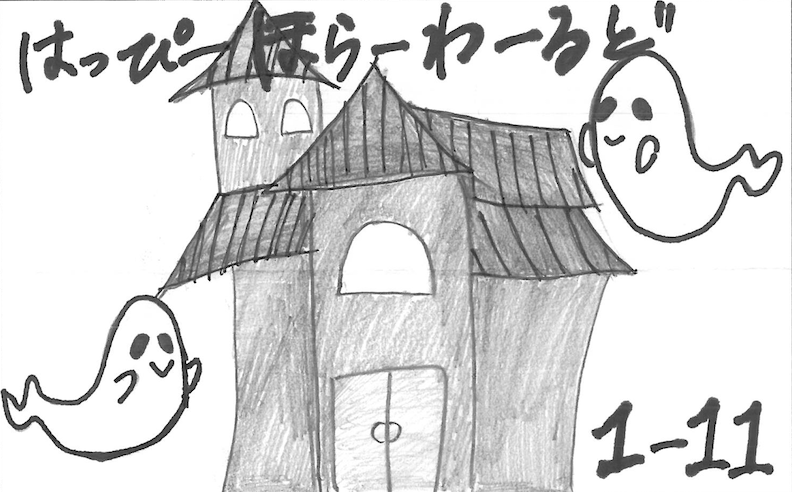 はっぴーほらーわーるど
1-11